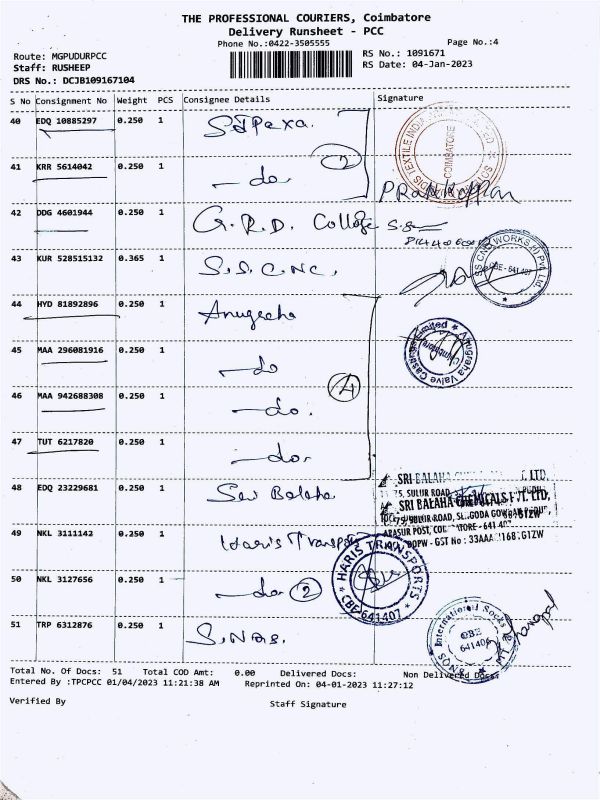 THE PROFESSIONAL COURIERS, Coimbatore
Delivery Runsheet - PCC
Phone No.:0422-3505555
Page No.:4
Route: MGPUDURPCC
RS No.: 1091671
Staff: RUSHEEP
RS Date: 04-Jan-2023
DRS No.: DCJB109167104
S No Consignment No Weight PCS Consignee Details Signature
40 EDQ 10885297 0.250 1
41 KRR 5614042 0.250 1 -do-
COIMBATORE
42 DDG 4601944 0.250 1 G.R.D. College
43 KUR 528515132 0.365 1 S.S.CNC.
CBE-641407
44 HYD 81892896 0.250 1 Anugraha
Anugraha Valve Castings Limited
Coimbatore
45 MAA 296081916 0.250 1 -do
46 MAA 942688308 0.250 1 -do.
4
47 TUT 6217820 0.250 1 -do.
48 EDQ 23229681 0.250 1 Sri Balaha
SRI BALAHA CHEMICALS PVT. LTD,
49 NKL 3111142 0.250 1 Haris Transport
50 NKL 3127656 1 -do 2
0.250
HARIS TRANSPORTS
CBE-641407
51 TRP 6312876 0.250 1
International Socks
CBE
Total No. Of Docs: 51 Total COD Amt: 0.00 Delivered Docs: Non Delivered Docs:
Entered By :TPCPCC 01/04/2023 11:21:38 AM Reprinted On: 04-01-2023 11:27:12
Verified By
Staff Signature